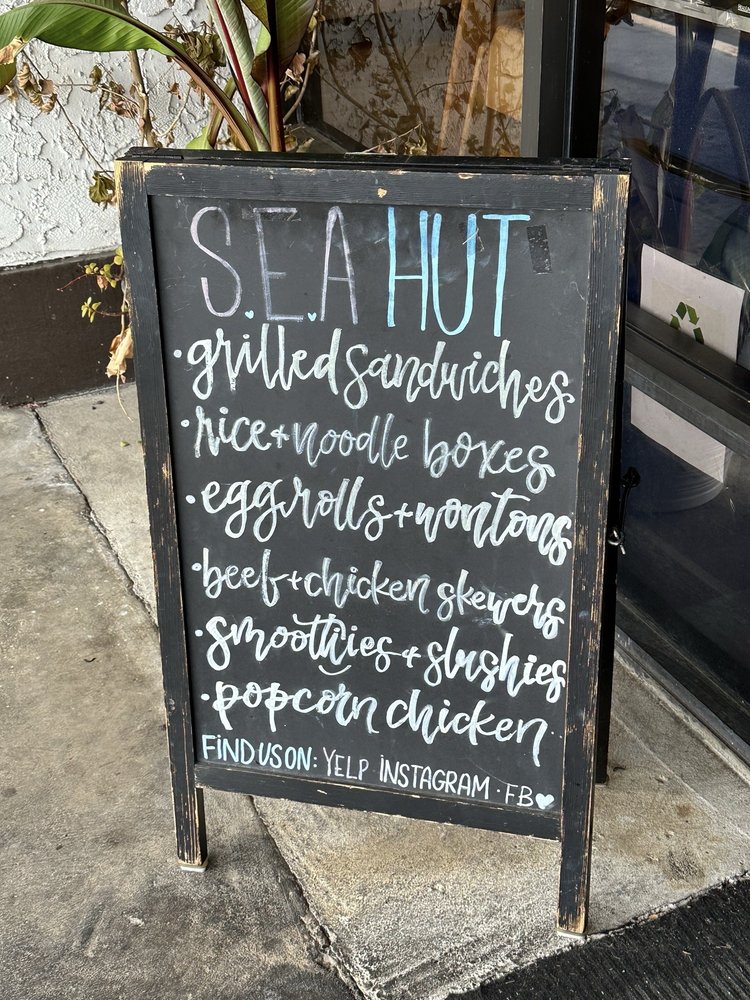 S.E.A HUT
•grilled sandwiches
•rice+noodle boxes
•egg rolls+wontons
•beef+chicken skewers
•smoothies+slushies
•popcorn chicken
FIND US ON: YELP INSTAGRAM · FB